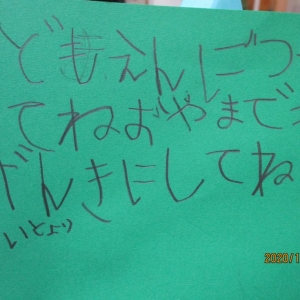 どもえんにつ
てねおやまで
げんきにしてね
いとより
2020/1